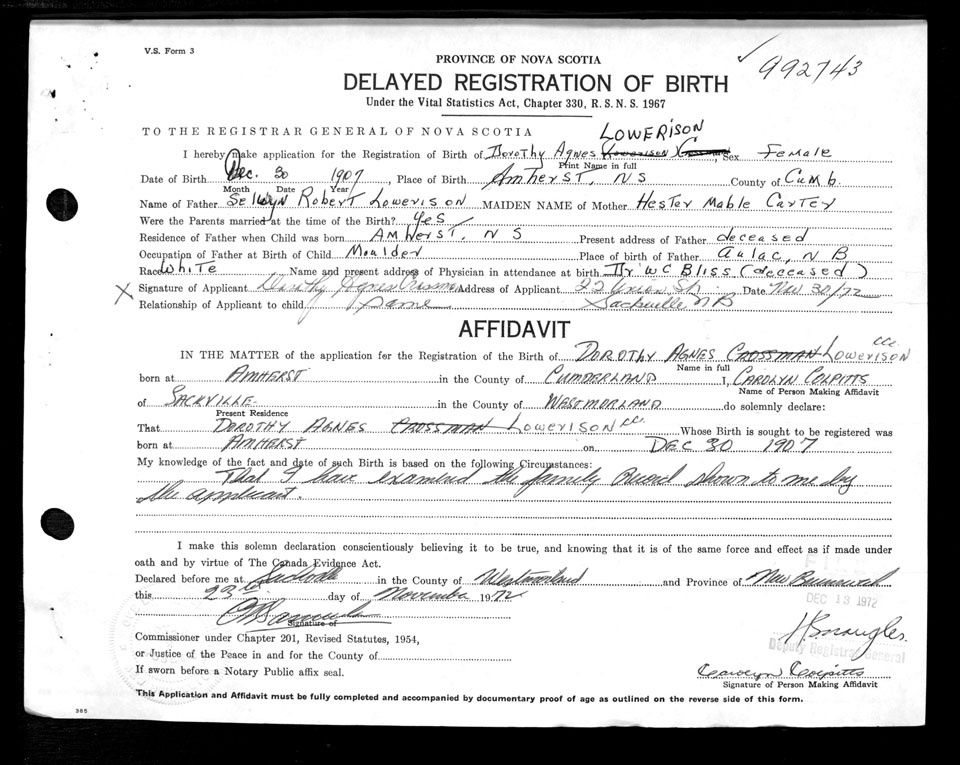 V.S. Form 3
PROVINCE OF NOVA SCOTIA
992743
DELAYED REGISTRATION OF BIRTH
Under the Vital Statistics Act, Chapter 330, R. S. N. S. 1967
TO THE REGISTRAR GENERAL OF NOVA SCOTIA LOWERISON
I hereby make application for the Registration of Birth of Dorothy Agnes (Lowerison) Sex Female
Print Name in full
Date of Birth Dec. 30 1907, Place of Birth Amherst, NS County of Cumb.
Month Date Year
Name of Father Selwyn Robert Lowerison MAIDEN NAME of Mother Hester Mable Carter
Were the Parents married at the time of the Birth? Yes
Residence of Father when Child was born Amherst, NS Present address of Father deceased
Occupation of Father at Birth of Child Moulder Place of birth of Father Aulac, N B
Race White Name and present address of Physician in attendance at birth Dr WC Bliss (deceased)
X Signature of Applicant Dorothy Agnes Address of Applicant 22 Union St. Date Nov 30/72
Relationship of Applicant to child Same Sackville NB
AFFIDAVIT
IN THE MATTER of the application for the Registration of Birth of DOROTHY AGNES CROSSMAN Lowerison ccc.
Name in full
born at AMHERST in the County of CUMBERLAND I, CAROLYN COLPITTS
Name of Person Making Affidavit
of SACKVILLE in the County of WESTMORLAND do solemnly declare:
Present Residence
That DOROTHY AGNES CROSSMAN Lowerison ccc. Whose Birth is sought to be registered was
born at AMHERST on DEC 30 1907
My knowledge of the fact and date of such Birth is based on the following Circumstances:
That I have examined the family record shown to me by
the applicant.
I make this solemn declaration conscientiously believing it to be true, and knowing that it is of the same force and effect as if made under
oath and by virtue of The Canada Evidence Act.
Declared before me at Sackville in the County of Westmorland and Province of New Brunswick
this 23rd day of November 1972
DEC 13 1972
Signature of
Commissioner under Chapter 201, Revised Statutes, 1954,
Deputy Registrar General
or Justice of the Peace in and for County of
If sworn before a Notary Public affix seal. Carolyn Colpitts
Signature of Person Making Affidavit
This Application and Affidavit must be fully completed and accompanied by documentary proof of age as outlined on the reverse side of this form.
365